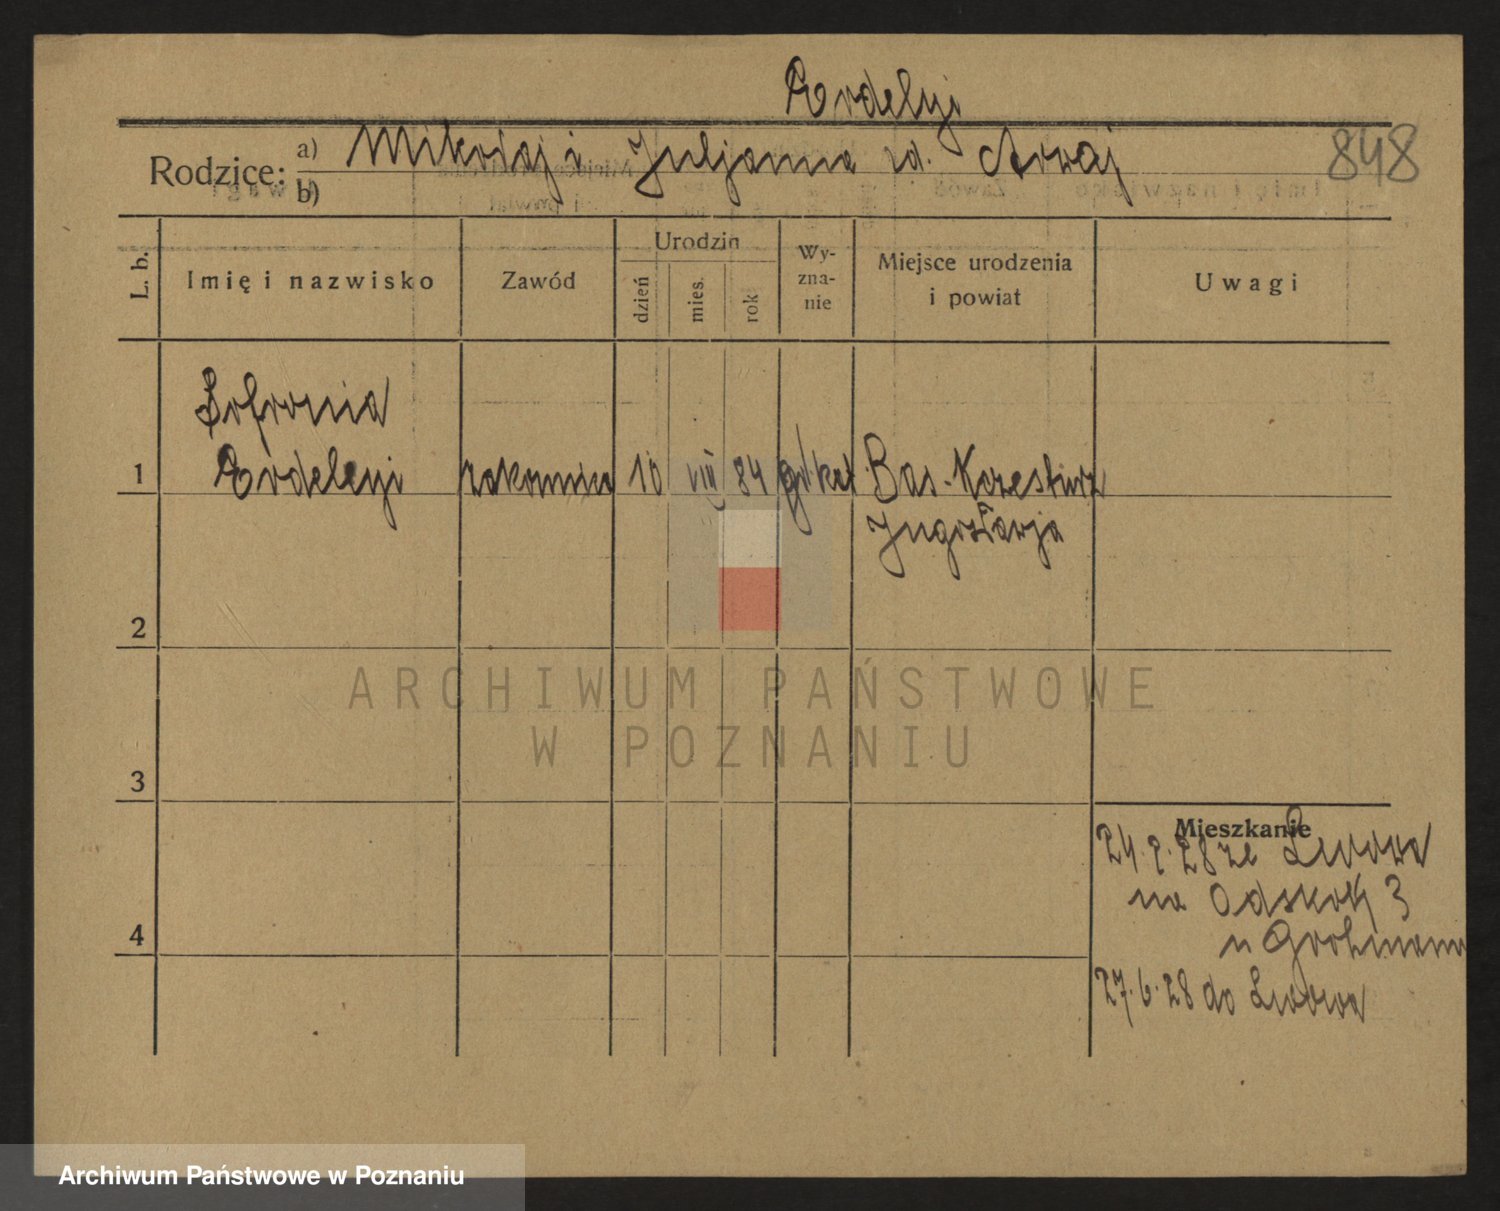 Erdelyi
Rodzice: a) Mikołaj i Juljanna zd. Arvaj
b)
848
L. b.
Imię i nazwisko
Zawód
Urodzin
dzień
mies.
rok
Wy-
zna-
nie
Miejsce urodzenia
i powiat
Uwagi
Sofronia
1 Erdelyi zakonnica 10 VIII 84 gr kat Bas. Kerestur
Jugosławja
2
3
4
Mieszkanie
28 ze Lwowa
na Odskok 3
u Grohmann
27.6.28 do Lwowa
ARCHIWUM PAŃSTWOWE
W POZNANIU
Archiwum Państwowe w Poznaniu